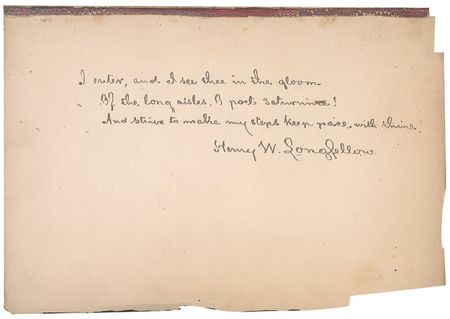 I enter, and I see thee in the gloom
Of the long aisles, O poet saturnine!
And strive to make my steps keep pace with thine.
Henry W. Longfellow